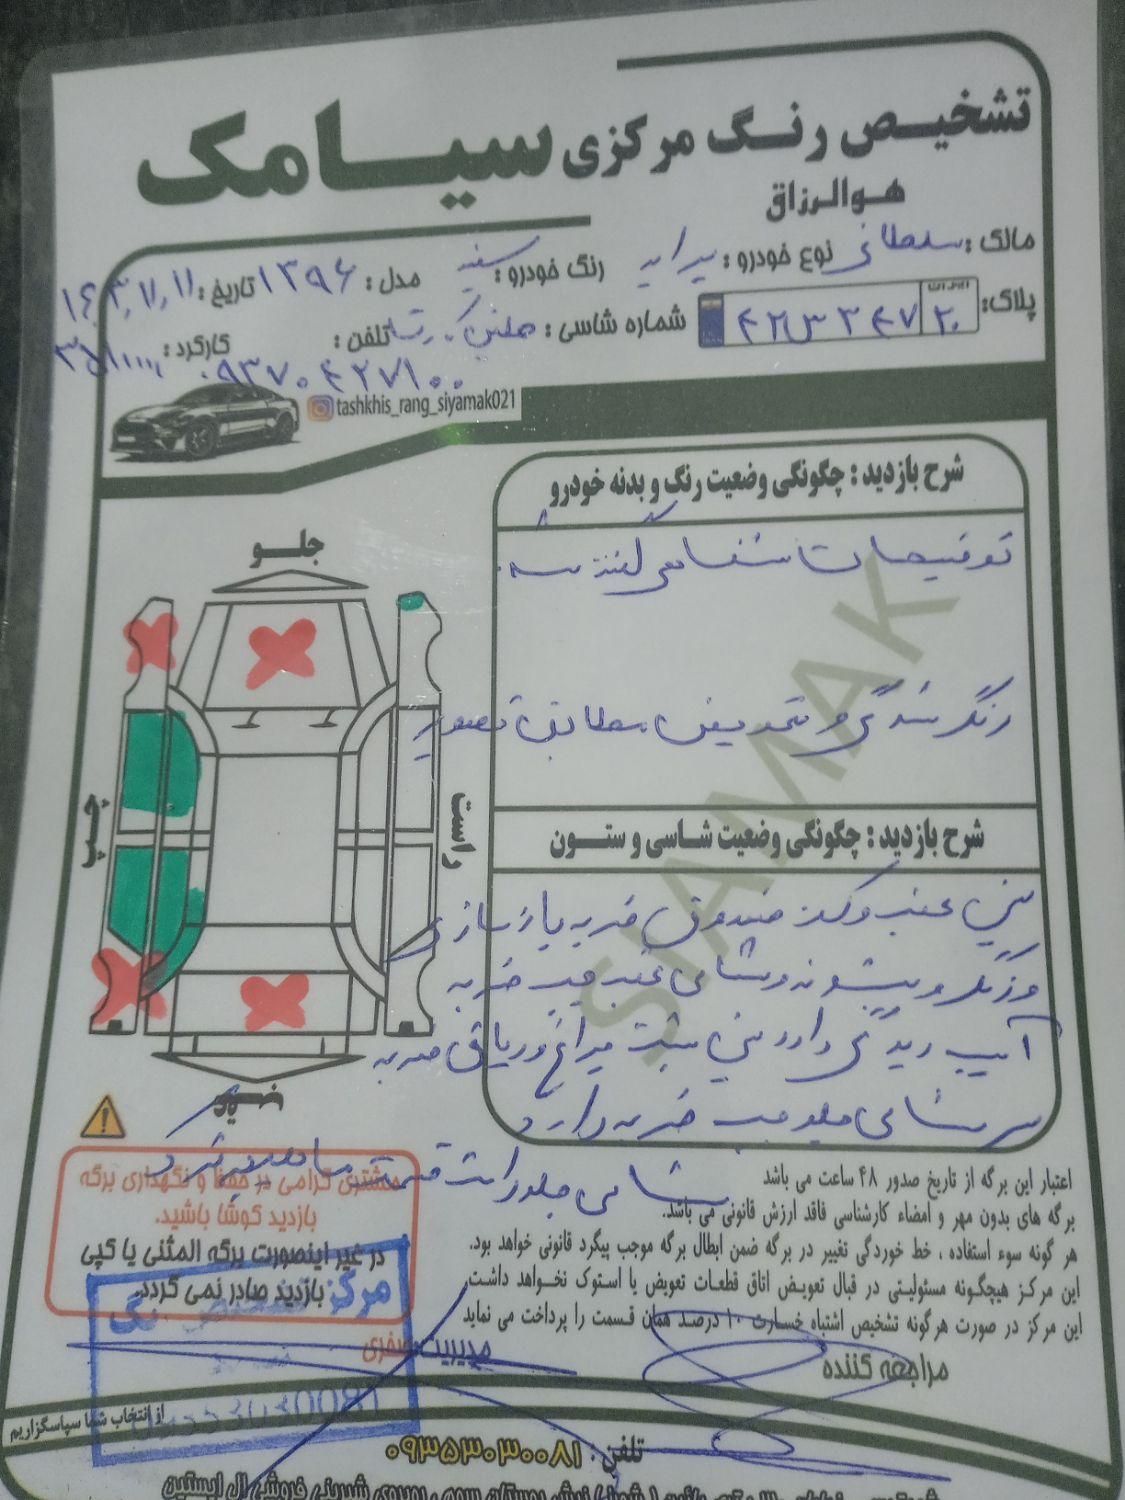 تشخیص رنگ مرکزی سیامک
هوالرزاق
مالک: سلطانی نوع خودرو: پراید رنگ خودرو: سفید مدل: ۱۳۹۶ تاریخ: ۱۴۰۳,۷,۱۱
پلاک: ایران ۲۰ ۳۴۷ س ۴۲ شماره شاسی: تلفن: کارکرد:
۰۹۳۷۰۴۲۷۱۰۰
tashkhis_rang_siyamak021
شرح بازدید: چگونگی وضعیت رنگ و بدنه خودرو
توضیحات شفاهی گفته شد.
رنگ شدگی و تعویض مطابق تصویر
شرح بازدید: چگونگی وضعیت شاسی و ستون
سینی عقب و کف صندوق ضربه بازسازی
و رنگ و پشتونه و شاسی عقب چپ ضربه
آسیب دیدگی دارد سینی پشت چراغ و ریاقی ضربه
سر شاسی جلو چپ ضربه دارد
شاسی جلو راست قسمت
جلو
چپ
راست
SIAMAK
مشتری گرامی در حفظ و نگهداری برگه
بازدید کوشا باشید.
در غیر اینصورت برگه المثنی یا کپی
بازدید صادر نمی گردد.
مرکز تشخیص رنگ
09353030081
مدیریت صفری
اعتبار این برگه از تاریخ صدور ۴۸ ساعت می باشد
برگه های بدون مهر و امضاء کارشناسی فاقد ارزش قانونی می باشد.
هر گونه سوء استفاده ، خط خوردگی تغییر در برگه ضمن ابطال برگه موجب پیگرد قانونی خواهد بود.
این مرکز هیچگونه مسئولیتی در قبال تعویض اتاق قطعات تعویض یا استوک نخواهد داشت.
این مرکز در صورت هرگونه تشخیص اشتباه خسارت ۱۰ درصد همان قسمت را پرداخت می نماید
مراجعه کننده
از انتخاب شما سپاسگزاریم
تلفن: ۰۹۳۵۳۰۳۰۰۸۱